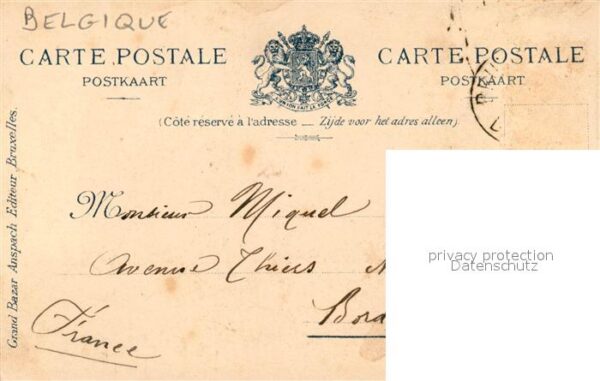 BELGIQUE
CARTE POSTALE
POSTKAART
CARTE POSTALE
POSTKAART
(Côté réservé à l'adresse — Zijde voor het adres alleen)
Grand Bazar Anspach Editeur Bruxelles.
Monsieur Miquel
Avenue Thiers
Bord
France
privacy protection
Datenschutz